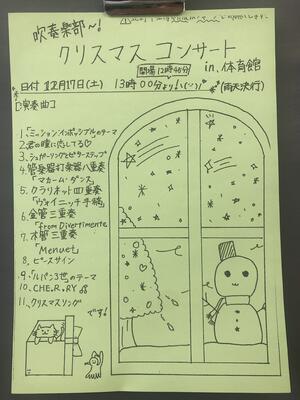 吹奏楽部〜!
クリスマスコンサート
開場12時45分
in、体育館
日付 12月17日(土) 13時00分より!
(雨天決行)
[演奏曲]
1、「ミッションインポッシブル」のテーマ
2、君の瞳に恋してる♡
3、シュガーソングとビターステップ
4、管楽器打楽器八重奏
「マカーム・ダンス」
5、クラリネット四重奏
「ヴォイニッチ手稿」
6、金管三重奏
「from Divertimento」
7、木管三重奏
「Menuet」
8、ピースサイン
9、「ルパン3世」のテーマ
10、CHE.R.RY
11、クリスマスソング
です!